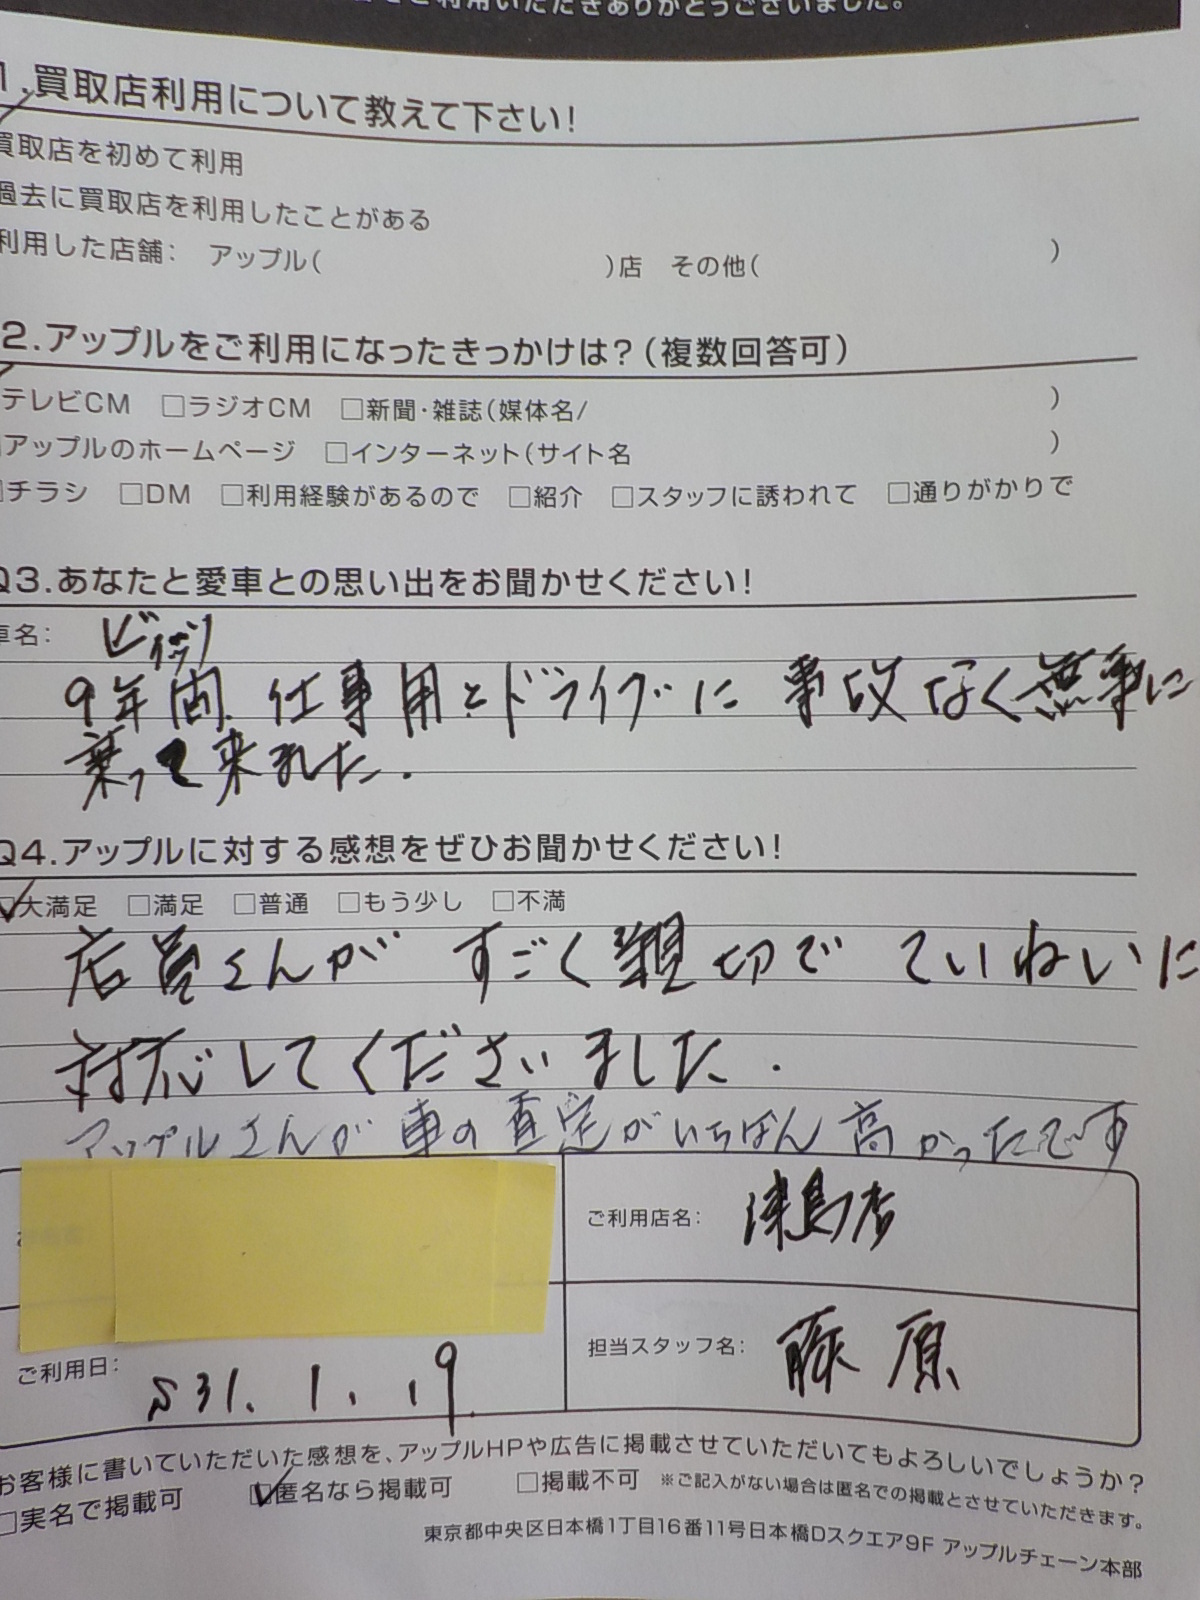 をご利用いただきありがとうございました。
1.買取店利用について教えて下さい!
買取店を初めて利用
過去に買取店を利用したことがある
利用した店舗: アップル( )店 その他( )
2.アップルをご利用になったきっかけは?(複数回答可)
テレビCM □ラジオCM □新聞・雑誌(媒体名/ )
アップルのホームページ □インターネット(サイト名 )
チラシ □DM □利用経験があるので □紹介 □スタッフに誘われて □通りがかりで
Q3.あなたと愛車との思い出をお聞かせください!
車名: ビィッツ
9年間、仕事用とドライブに 事故なく無事に
乗って来れた.
Q4.アップルに対する感想をぜひお聞かせください!
☑大満足 □満足 □普通 □もう少し □不満
店員さんが すごく親切で ていねいに
対応してくださいました.
アップルさんが 車の査定がいちばん高かったです
ご利用店名: 津島店
ご利用日: S31. 1. 19
担当スタッフ名: 藤原
お客様に書いていただいた感想を、アップルHPや広告に掲載させていただいてもよろしいでしょうか?
□実名で掲載可 ☑匿名なら掲載可 □掲載不可 ※ご記入がない場合は匿名での掲載とさせていただきます。
東京都中央区日本橋1丁目16番11号日本橋Dスクエア9F アップルチェーン本部